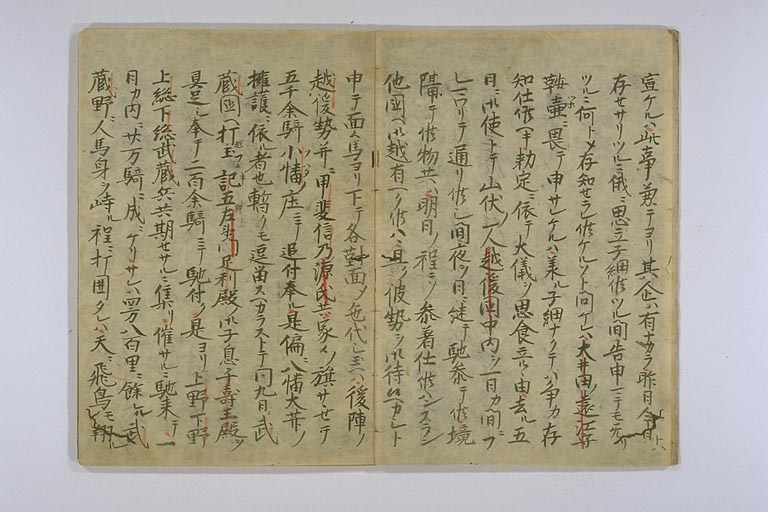 宣ケルハ此事兼テヨリ其企ハ有ナカラ昨日今日トハ
存セサリツルニ俄ニ思立子細候ツル間告申マテモ无リ
ツルニ何トメ存知セラレ候ケルソト問ケレハ大井田遠江守
鞍壷ニ畏テ申サレケルハ其子細ナクテハ争カ存
知仕候ヘキ勅定ニ依テ大儀ヲ思食立ルヽ由去ル五
日ニ御使トテ山伏一人越後国中内ヲ一日カ間ニフ
レマワリテ通リ候シ間夜ヲ日ニ継テ馳参テ候境
隔ﾃ候物共ハ明日ノ程ニソ参着仕候ハンスラン
他国ヘ御越有ヘク候ハヽ且ク彼勢ヲ御待候ヘカシト
申テ面々馬ヨリ下テ各對面メ色代シ玉ヘハ後陣ノ
越後勢并ニ甲斐信乃源氏共家々ノ旗ヲサセテ
五千余騎小幡ノ庄ニテ追付奉ル是偏ニ八幡大井ノ
擁護ニ依ル者也暫クモ逗留スヘカラストテ同九日武
蔵国ヘ打玉フニ記五左衛門足利殿ノ御子息千壽王殿ヲ
具足シ奉テ二百余騎ニテ馳付ク是ヨリ上野下野
上総下総武蔵兵共期セサルニ集リ催サルニ馳来テ一
日カ内ニ廿万騎ニ成ニケリサレハ四方八百里ニ餘レル武
蔵野ニ人馬身ヲ峙ル程ニ打囲タレハ天ニ飛鳥モ翔ル